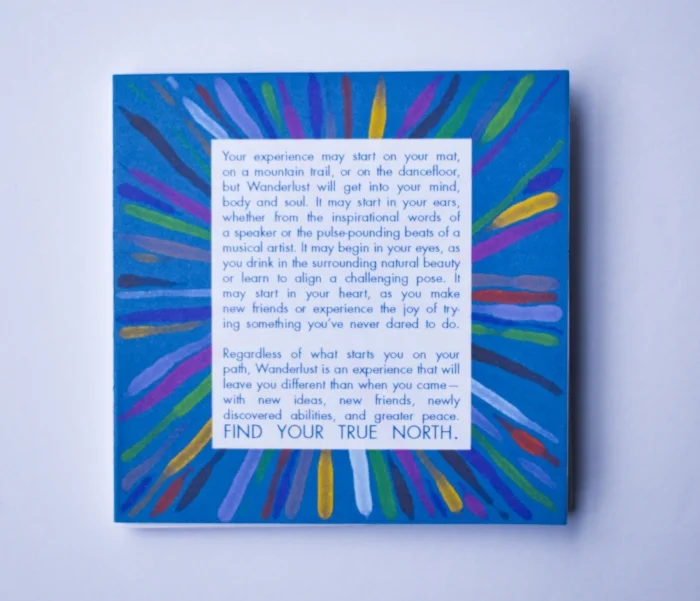 Your experience may start on your mat,
on a mountain trail, or on the dancefloor,
but Wanderlust will get into your mind,
body and soul. It may start in your ears,
whether from the inspirational words of
a speaker or the pulse-pounding beats of a
musical artist. It may begin in your eyes, as
you drink in the surrounding natural beauty
or learn to align a challenging pose. It
may start in your heart, as you make
new friends or experience the joy of try-
ing something you've never dared to do.
Regardless of what starts you on your
path, Wanderlust is an experience that will
leave you different than when you came—
with new ideas, new friends, newly
discovered abilities, and greater peace.
FIND YOUR TRUE NORTH.